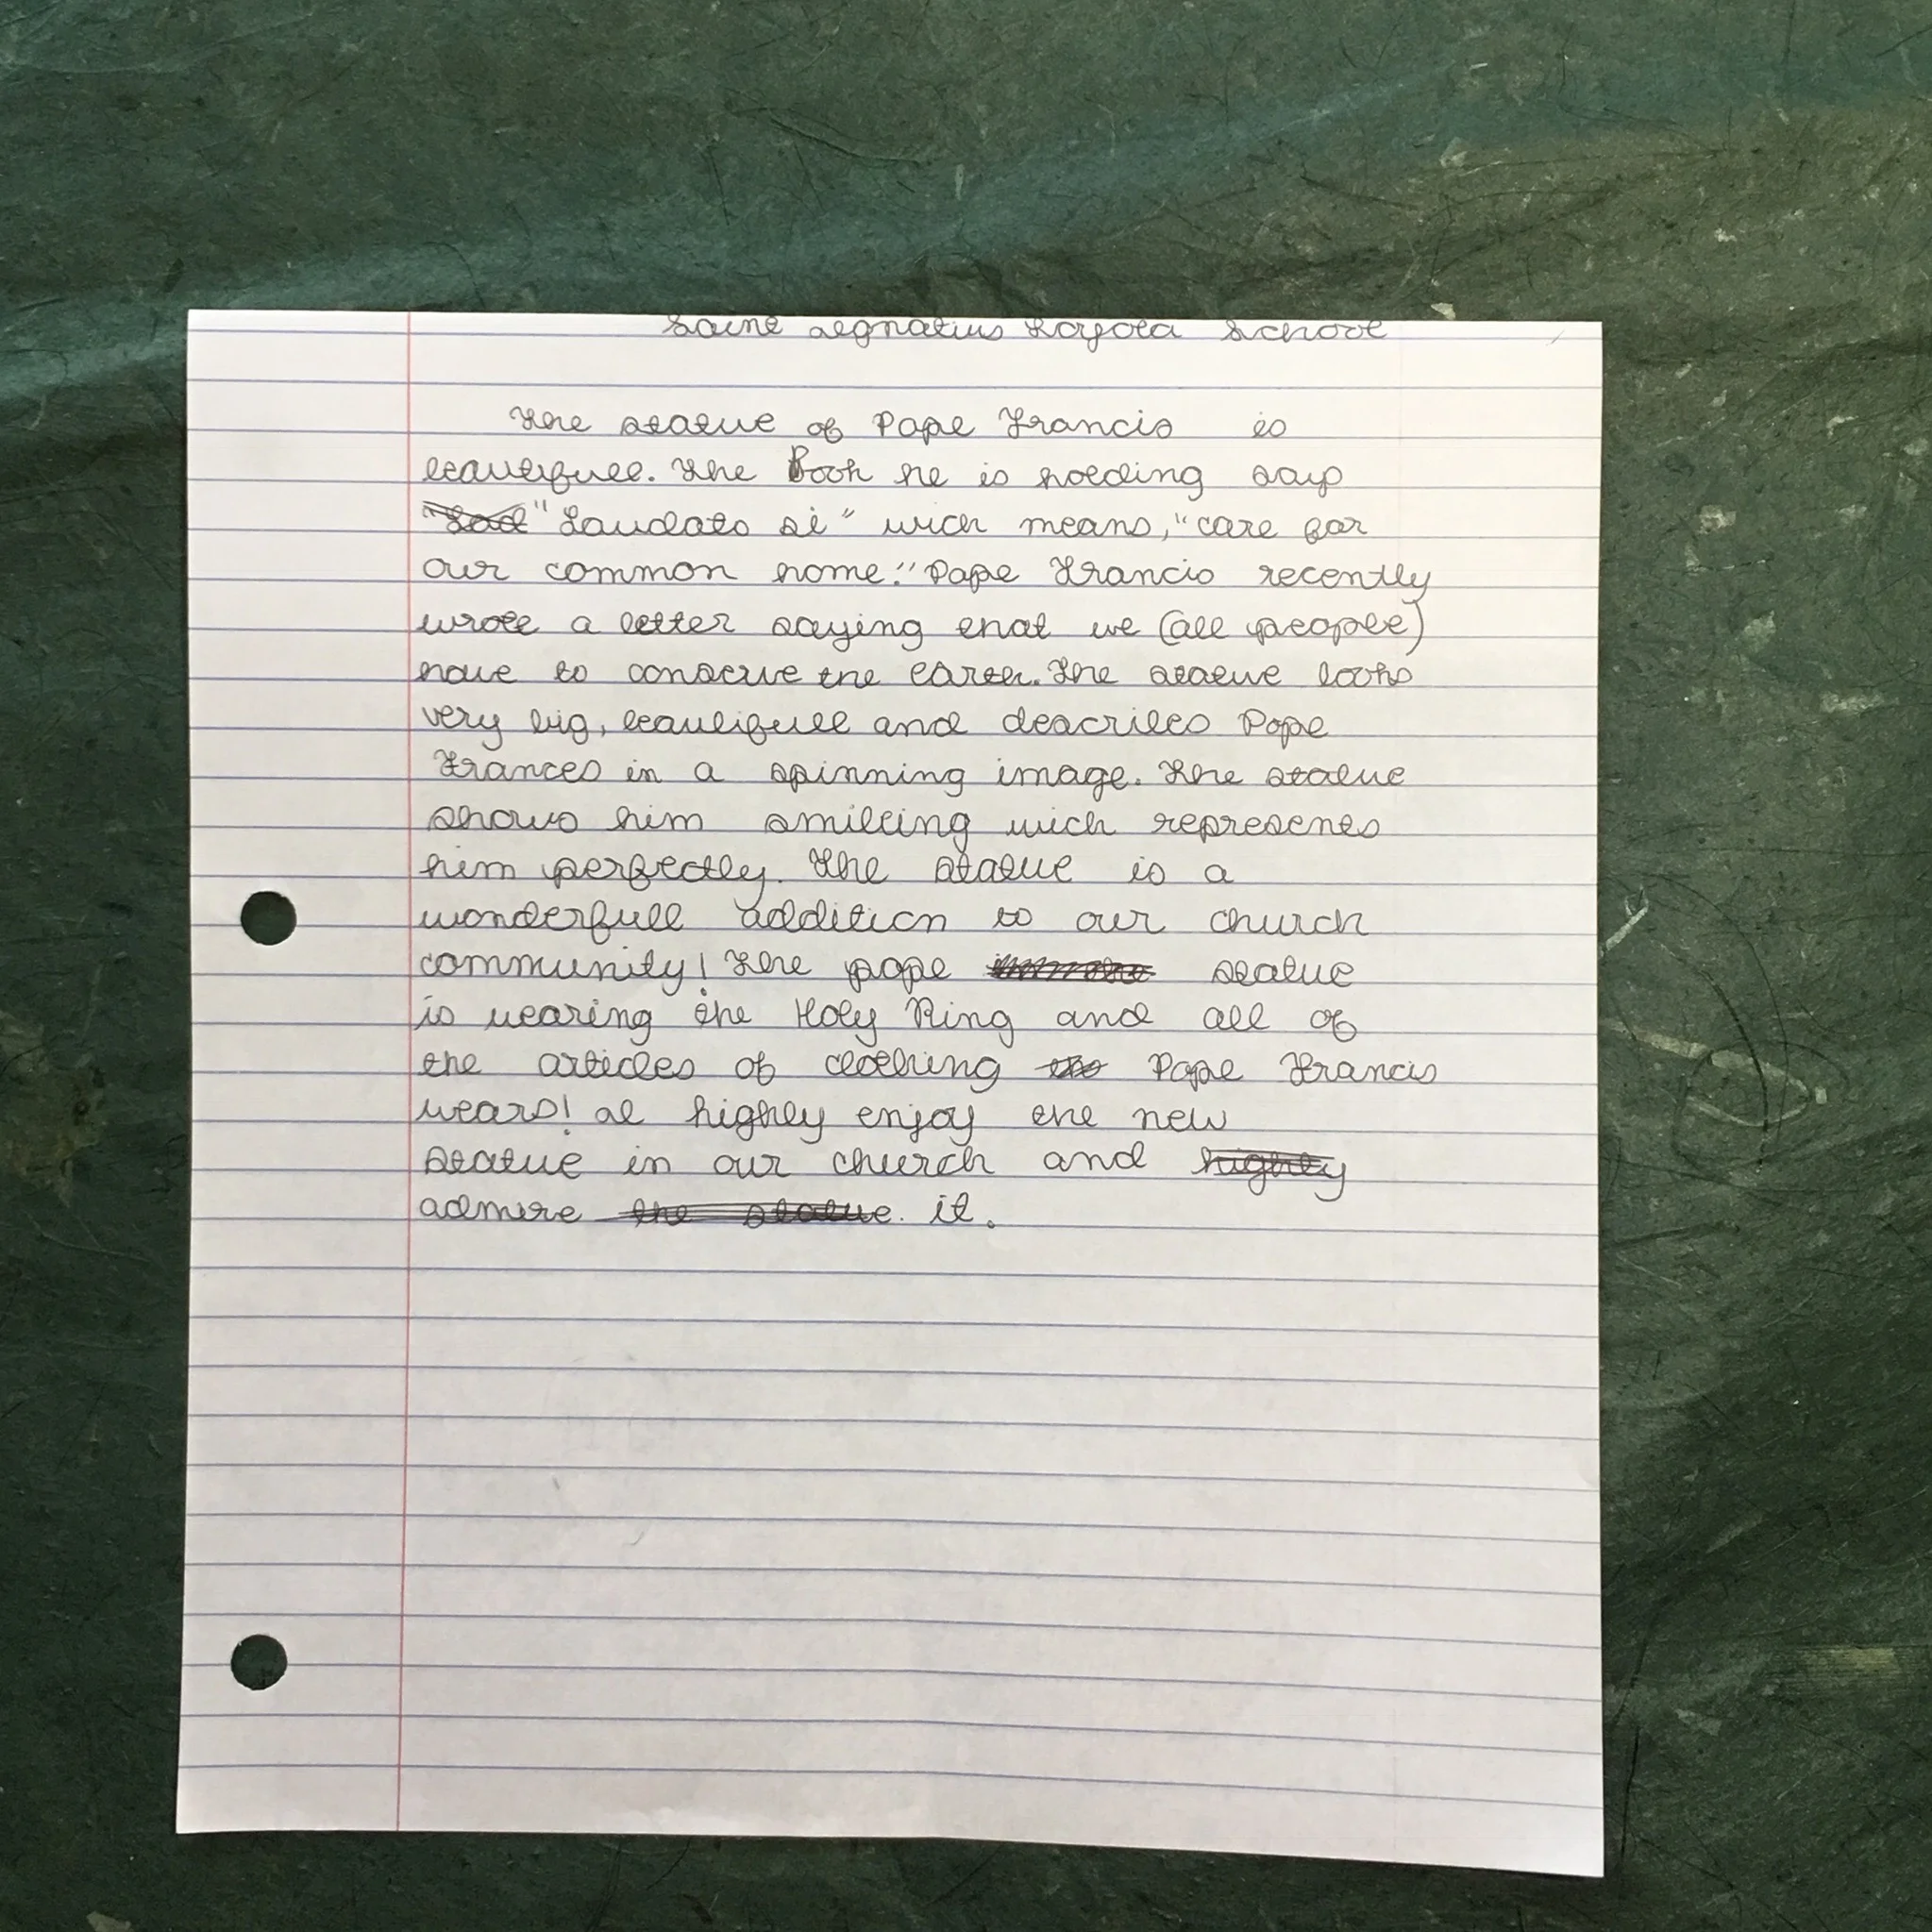 Saint Ignatius Loyola School
The statue of Pope Francis is
beautifull. The Book he is holding says
"Lad" "Laudato si" wich means, "care for
our common home." Pope Francis recently
wrote a letter saying that we (all people)
have to conserve the earth. The statue looks
very big, beautifull and describes Pope
Frances in a spinning image. The statue
shows him smileing wich represents
him perfectly. The statue is a
wonderfull addition to our church
community! The pope statue
is wearing the Holy Ring and all of
the articles of clothing the Pope Francis
wears! I highly enjoy the new
statue in our church and highly
admire the statue. it.